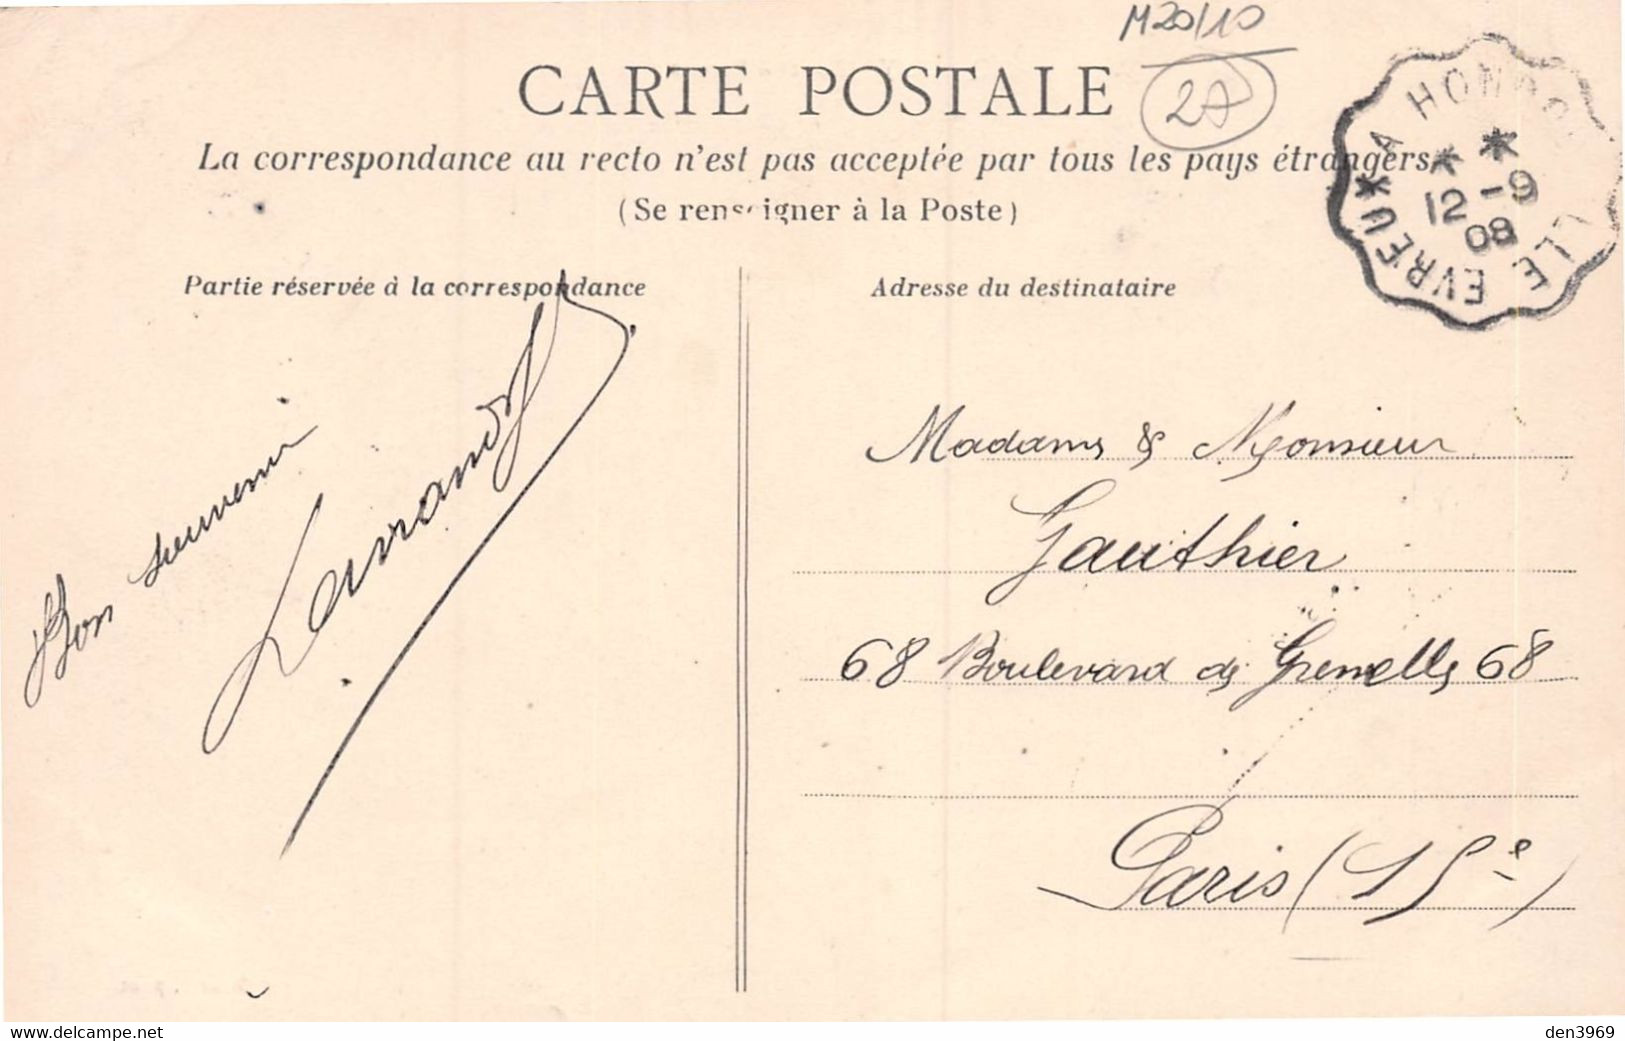 M20/10
CARTE POSTALE
27
La correspondance au recto n'est pas acceptée par tous les pays étrangers
(Se renseigner à la Poste)
EVREUX A HONDOUVILLE
12 -9
08
Partie réservée à la correspondance
Adresse du destinataire
Bon souvenir
Madame & Monsieur
Gauthier
68 Boulevard de Grenelle 68
Paris (15e)
www.delcampe.net
den3969